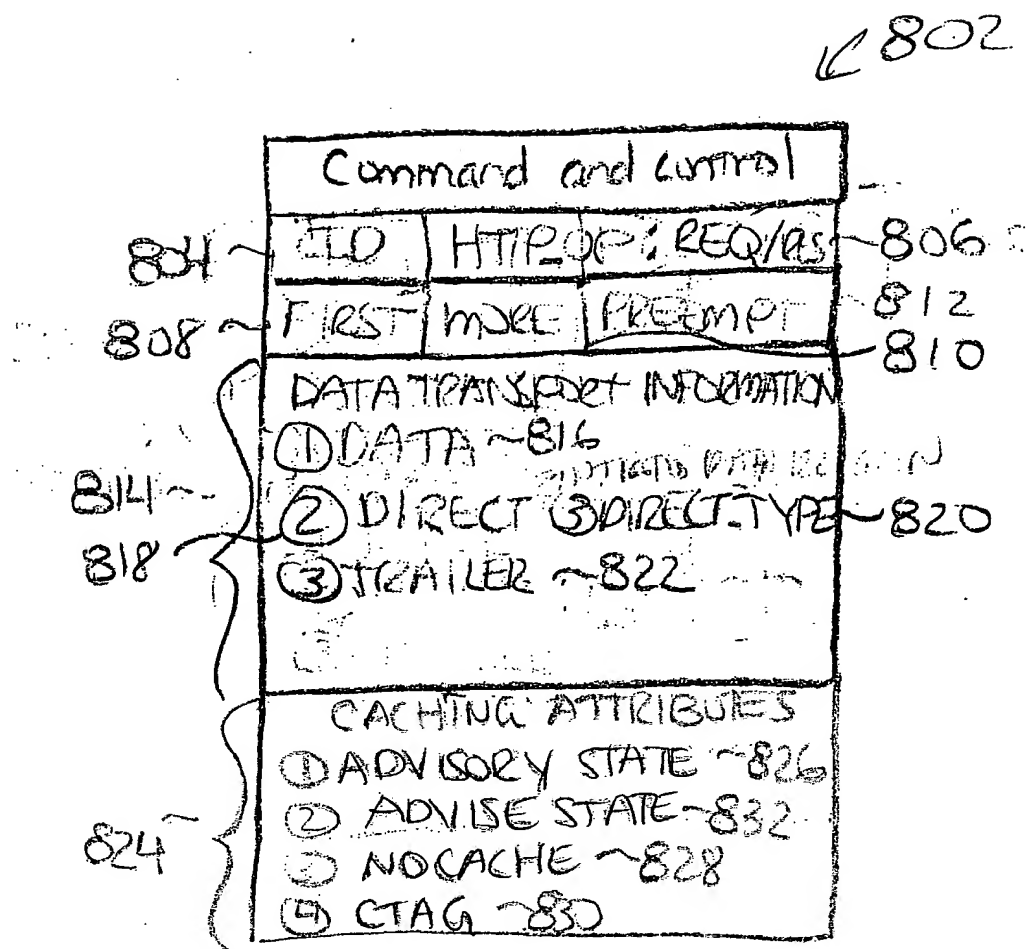 802
Command and control
804 CID HTTP_OP: REQ/RS 806
808 FIRST MORE PREEMPT 812
810
DATA TRANSPORT INFORMATION
① DATA 816
814
② DIRECT ③ DIRECT-TYPE 820
818
③ TRAILER 822
CACHING ATTRIBUTES
① ADVISORY STATE 826
② ADVISE STATE 832
824
③ NOCACHE 828
④ CTAG 830